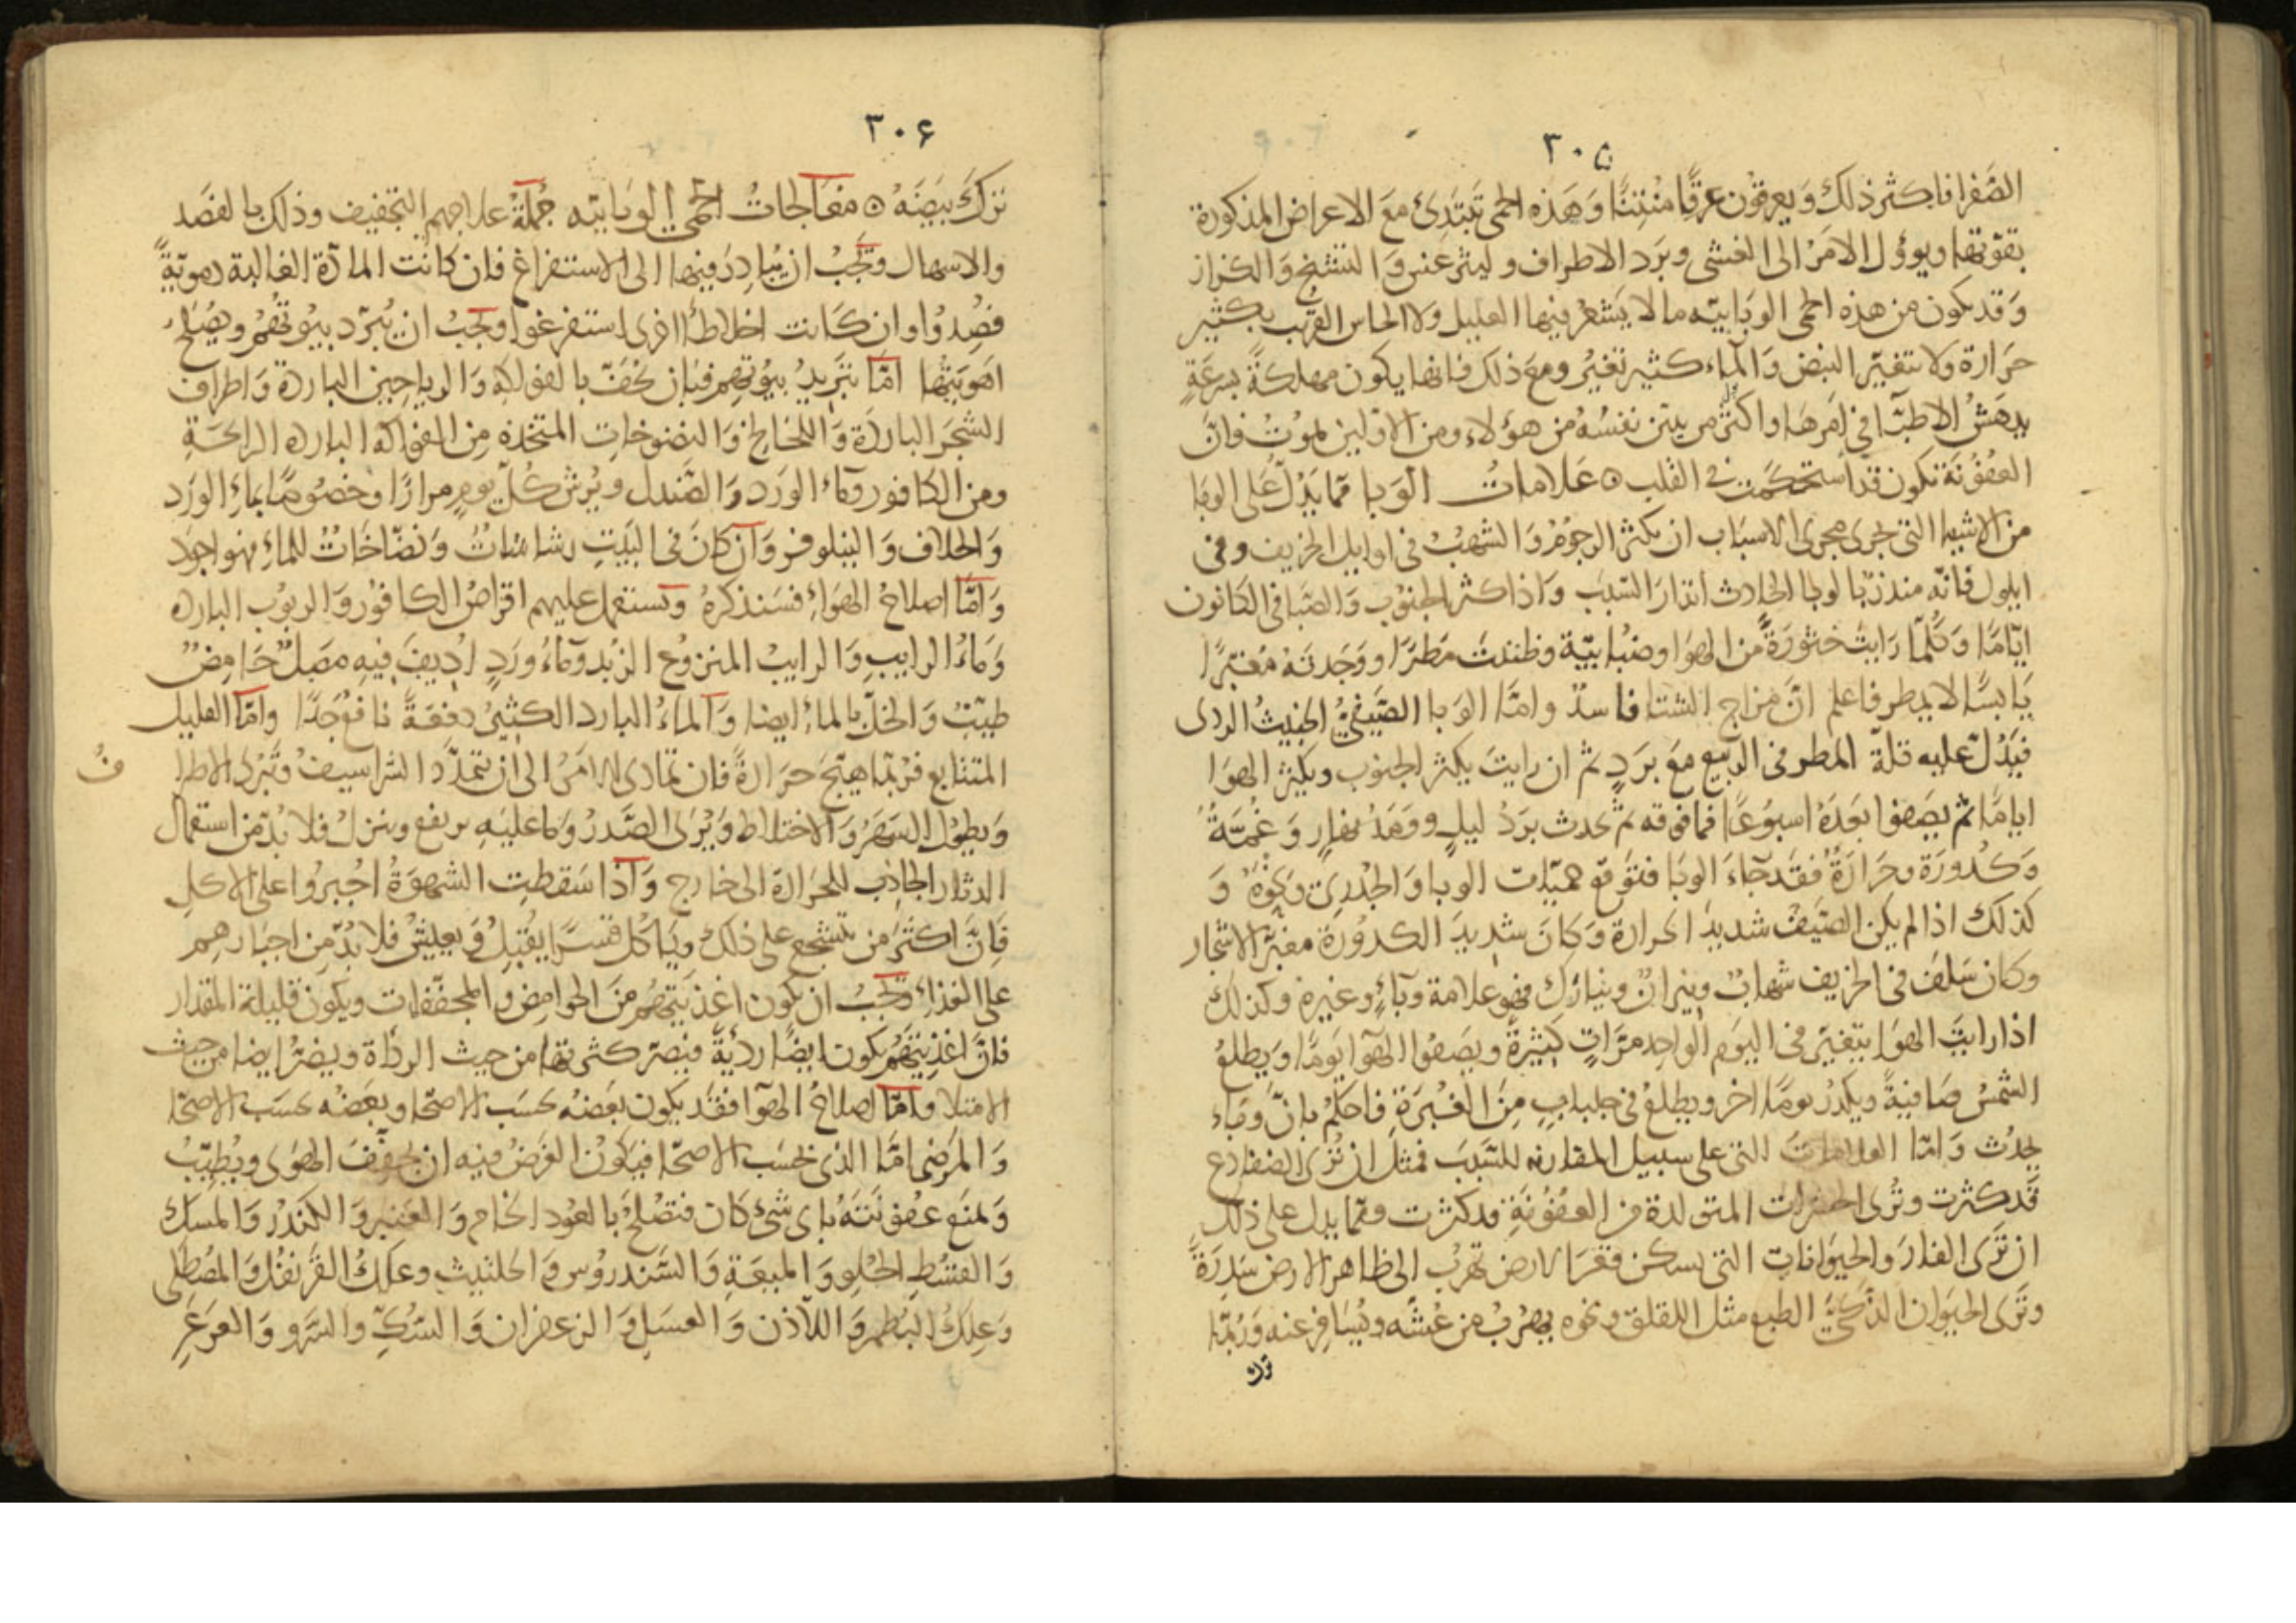 ٣٠٥
الصَّفرا فاكثر ذلك وَيعرقُون عرقًا مُنْتِنًا وَهَذه الحمى تَبتَدئ معَ الاعراض المذكورة
بقوّتها ويوؤل الامَرُ الى الغشى وبَرَد الاطراف و ليثرغنس وَالتشنج وَالكزاز
وَقد يكون من هذه الحمى الوبَابيّه ما لا يَشعُر فيها العليل وَلا الحاس القرب بكثير
حَرَارة ولا يتغيّر النبض وَالماء كثير تغيُر ومع ذلك فانها يكون مهلكةً بسرعَةٍ
يدهَشُ الاطبّا في امَرهَا واكثر من ينتن نفسُهُ من هؤلاء ومن الاوّلين يموُتُ فانّ
العفُوُنَة تكون قد استحكمَت في القلب ه عَلامَاتُ الوَبا ممّا يَدُلّ عَلى الوبَا
من الاشيَا التى تجرى مجرى الاسبَاب ان يكثر الرجوُمُ وَالشهبُ في اوايل الخريف وفى
ايلول فانّه منذر بالوبا الحادث انذارَ السّبَب وَاذا كثر الجنوُب وَالصّبا في الكانون
ايّامًا وَكُلّمَا رَايتَ خثوُرَةً من الهوَا وضبُابيّة وظننتَ مَطَرًا ووَجَدتَهُ مُغبّرًا
يَابسًا لا يمطر فاعلم انَّ مزاج الشتَا فاسدٌ وامّا الوَبا الصَّيفيُّ الخبيثُ الردى
فيَدُلّ عليه قلّة المطر فى الربيع معَ بَردٍ ثم ان رايتَ يكثر الجنوُب ويكدّر الهوَا
ايامًا ثم يصَفوا بعَدَهُ اسبوُعًا فما فوقه ثم يحدث بَردُ ليلٍ ووَمَدُ نهَارٍ وَغُمَّةٌ
وَكدُورَة وحَرَارَةٌ فقَد جَاءَ الوبَا فتوَقع حميّات الوبا وَالجُدَرِى ونحوُهُ وَ
كذلك اذا لم يكن الصّيَفُ شديدَ الحرارة وَكانَ شديدَ الكدوُرة مغبّر الاشجار
وكان سَلفَ فى الخريف شهابٌ ونيرانٌ ونيازك فهو علامة وبَآءٍ وغيره وكذلك
اذا رايتَ الهوَا يتغيّر فى اليوَم الواحد مَرّاتٍ كثيرةً ويصَفوُا الهوَا يَومًا ويَطلعُ
الشمسُ صَافيةً ويكدرُ يومًا اخر ويطلعُ فى جلبابٍ مِنَ الغُبرَةِ فاحكم بانّ وَبَاء
يحدُث وَامّا العلامات التى على سبيل المقارنه للسَّبَب فمثل ان تُرى الضفادع
قَد كثرت وتُرى الحشرات المتولدة من العفوُنَةِ قد كثرت وممّا يدل على ذلك
ان تَرَى الفارَ والحيوَانات التى تسكن قعَرَ الارض تهرُبُ الى ظاهر الارض سَدِرَةً
وتَرَى الحيَوان الذكىّ الطبع مثل اللقلق ونحوه يهرُبُ من عُشّه ويُسَافِر عنه وَرُبّمَا
ترك
٣٠۶
تركَ بَيضَهُ ه معَالجاتُ الحمّى الوبَابيّه جُملَةُ علاجهم التجفيف وذلك بالفصَد
والاسهال وَيجَبُ ان يُبادِرَ فيها الى الاستفراغ فان كانت المادّة الغالبة دمويّةً
فصُدُوا وان كَانت اخلاطاً اخرى استفرغوا ويجَبُ ان يُبَرّد بيوُتهُمُ ويُصَلحُ
اهَويَتُها امّا تَبريدُ بيُوتهم فبان يُحَفّ بالفوَاكِه وَالرياحين الباردة وَاطراف
الشجَر الباردَة وَاللخالخ وَالنضوخات المتخذة مِن الفواكه البارده الرائحَةِ
ومن الكافور ومَاءِ الورَد وَالصَّندل ويُرش كُلّ يوم مرارًا وخصُوصًا بمَاءِ الورَد
وَالخلاف وَالنيلوفر وَان كانَ فى البَيَت رشاشاتُ وَنضّاخَاتُ للماءِ فهو اجود
وَامّا اصلاحُ الهوَاءِ فسَنذكرهُ وَتستعمل عليهم اقراصُ الكافوُر وَالربوُب البارده
وَمَاءُ الرايبِ وَالرايبُ المنزوُع الزبُد ومَاءُ ورَدٍ اُديفَ فيه مَصَلٌ حَامِضٌ
طيّبٌ وَالخلّ بالماءِ ايضا وَالمَاءُ البارد الكثيرُ دفعَةً نافع جَدّا وامّا العليل
المتتابع فرُبّما هيّجَ حرَارةً فان تمادى الامَرُ الى ان تتمدّد الشراسيفُ وتَبرُدَ الاطرا
فُ
وَيطوُل السهَرُ وَالاختلاط وَيُرَى الصَّدرُ وَمَا علَيه يرتفع وينزلُ فلا بُدّ من استعمال
الدثار الجاذب للحَرَارة الى خارج وَاذا سَقطتِ الشهوَةُ اُجبروُا على الاكلِ
فَانَّ اكثَرَ من تشجع على ذلك ويَاكل قسرًا يقُبلُ وَيعيشُ فلا بُدّ من اجبَارهم
على الغذاءِ ويجَبُ ان يكون اغذيتهُم منَ الحوَامِض والمجفّفات ويكون قليلة المقدار
فانّ اغذيتهُم يكون ايضًا ردّيةً فيَضرّ كثرتها من حيث الردَاة ويضرّ ايضا من حيث
الامتلا وَامّا اصلاحُ الهوَا فقَد يكون بعَضهُ بحسَب الاصحّا وبعَضُه بحسَب الاصحّا
وَالمَرضَى امّا الذى بحَسَب الاصحّا فيكوُن الغرَضُ فيه ان يجفّفَ الهوَى ويُطيّبُ
وَيمنَع عُفوُنتَهُ باىّ شَىٍ كان فتصُلحُ بالعوُد الخام وَالعَنبر وَالكندُر وَالمسك
وَالقسُطِ الحُلو وَالميعَة وَالسَّندروُس وَالحلتيث وعلك القرَنفُل وَالمصُطكى
وَعلك البُطم وَاللاذن وَالعسَل وَالزعفران وَالسّكّ والسَّرو وَالعرَعَرِ